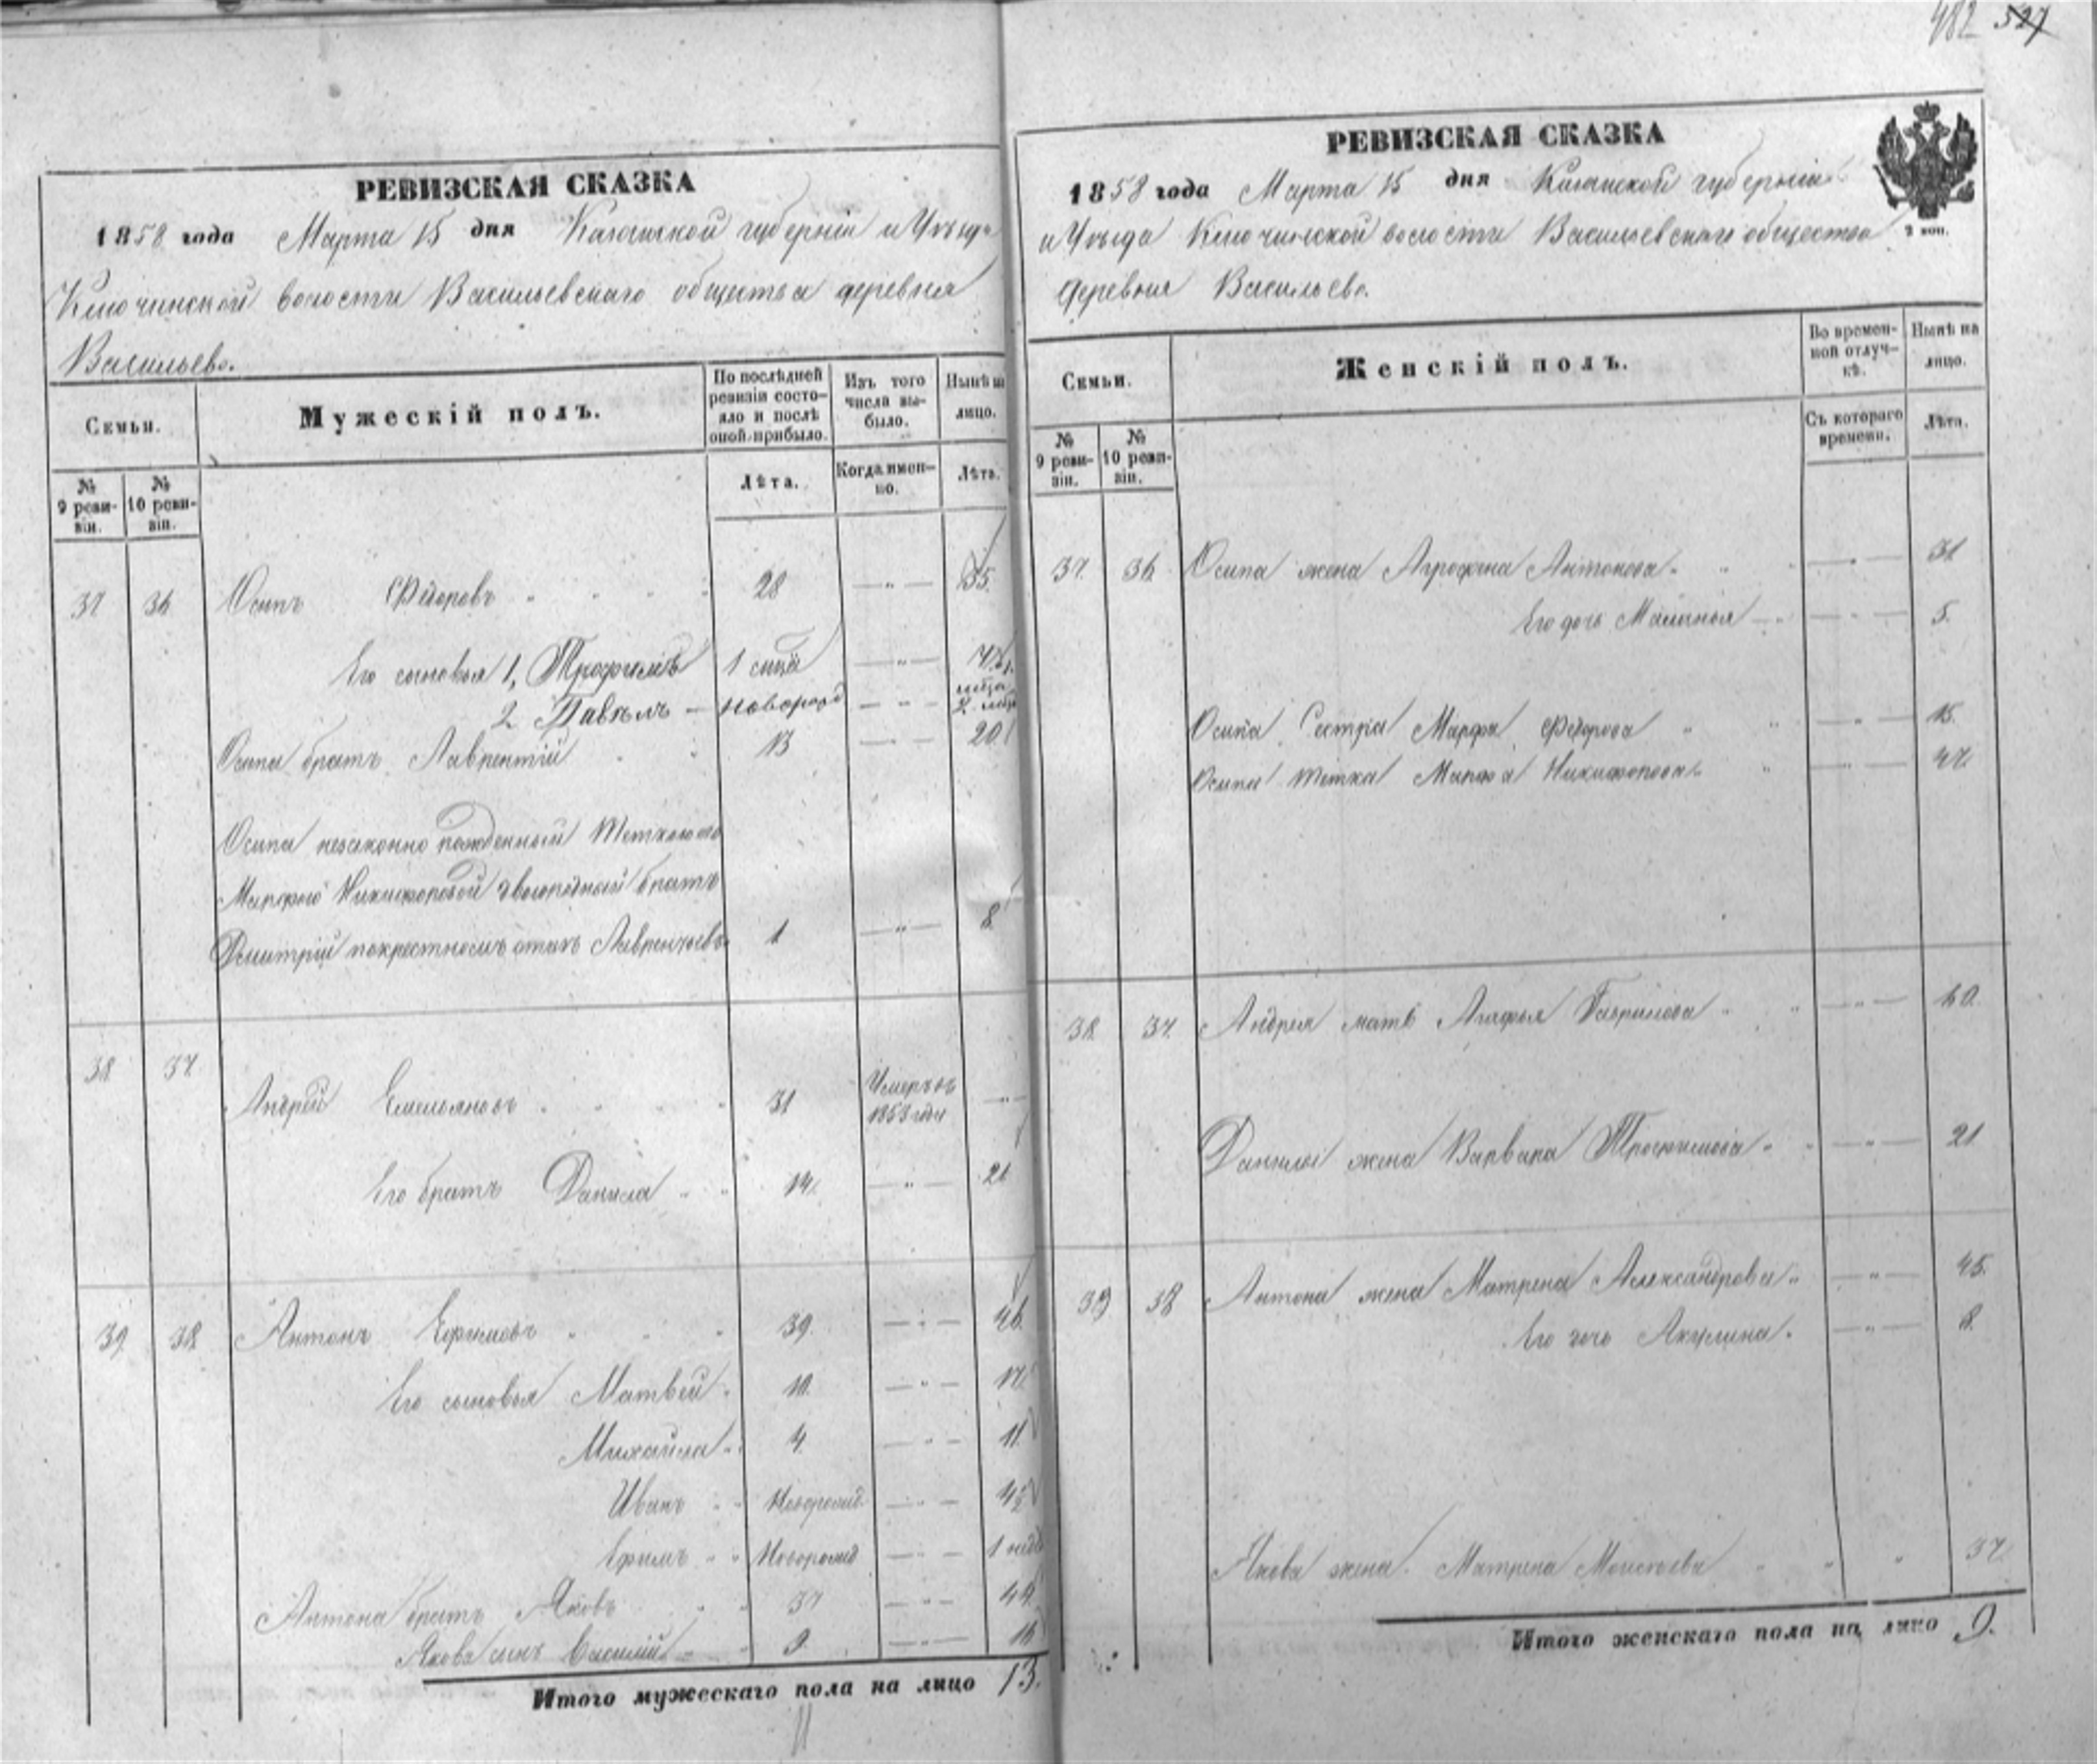 482 527
РЕВИЗСКАЯ СКАЗКА
1858 года Марта 15 дня губерніи и Уѣзда
Ключинской волости Васильевскаго общества деревня
Васильево.
Семьи.
Мужескій полъ.
По послѣдней ревизіи состояло и послѣ оной прибыло.
Изъ того числа выбыло.
Нынѣ на лицо.
№ 9 ревизіи.
№ 10 ревизіи.
Лѣта.
Когда именно.
Лѣта.
37 36 Осипъ Фёдоровъ 28 — " — 35.
Его сыновья 1, Трофимъ — " —
2 Павелъ — новорожд — " —
Осипа братъ Лаврентій 13 — " — 20
Осипа незаконно рожденный теткою его
Марфою Никифоровой двоюродный братъ
Дмитрій по крестномъ отцѣ Лаврентьевъ 1 — " — 8
38 37 Андрей Емельяновъ 31 Умеръ въ 1853 годѣ — " —
Его братъ Данила 14. — " — 21
39 38 Антонъ Ефимовъ 39. — " — 46.
Его сыновья Матвей 10. — " — 17.
Михайла 4. — " — 11.
Иванъ Новорожд — " — 4½
Ефимъ Новорожд — " — 1 нед
Антона братъ Яковъ 37 — " — 44.
Якова сынъ Василий 9 — " — 16
Итого мужескаго пола на лицо 13.
РЕВИЗСКАЯ СКАЗКА
1858 года Марта 15 дня губерніи
и Уѣзда Ключинской волости Васильевскаго общества
деревня Васильево.
2 коп.
Семьи.
Женскій полъ.
Во временной отлучкѣ.
Нынѣ на лицо.
№ 9 ревизіи.
№ 10 ревизіи.
Съ котораго времени.
Лѣта.
37. 36. Осипа жена Агрофена Антонова — " — 31
Его дочь — " — 5.
Осипа Сестра Марфа Фёдорова — " — 15.
Осипа тётка Марфа Никифорова — " — 47.
38. 37. Андрея мать Агафья Гаврилова — " — 60.
Данилы жена Варвара Трофимова — " — 21
39 38 Антона жена Матрена Александрова — " — 45.
Его дочь Акулина — " — 8.
Якова жена Матрена Моисеева " 37.
Итого женскаго пола на лицо 9.